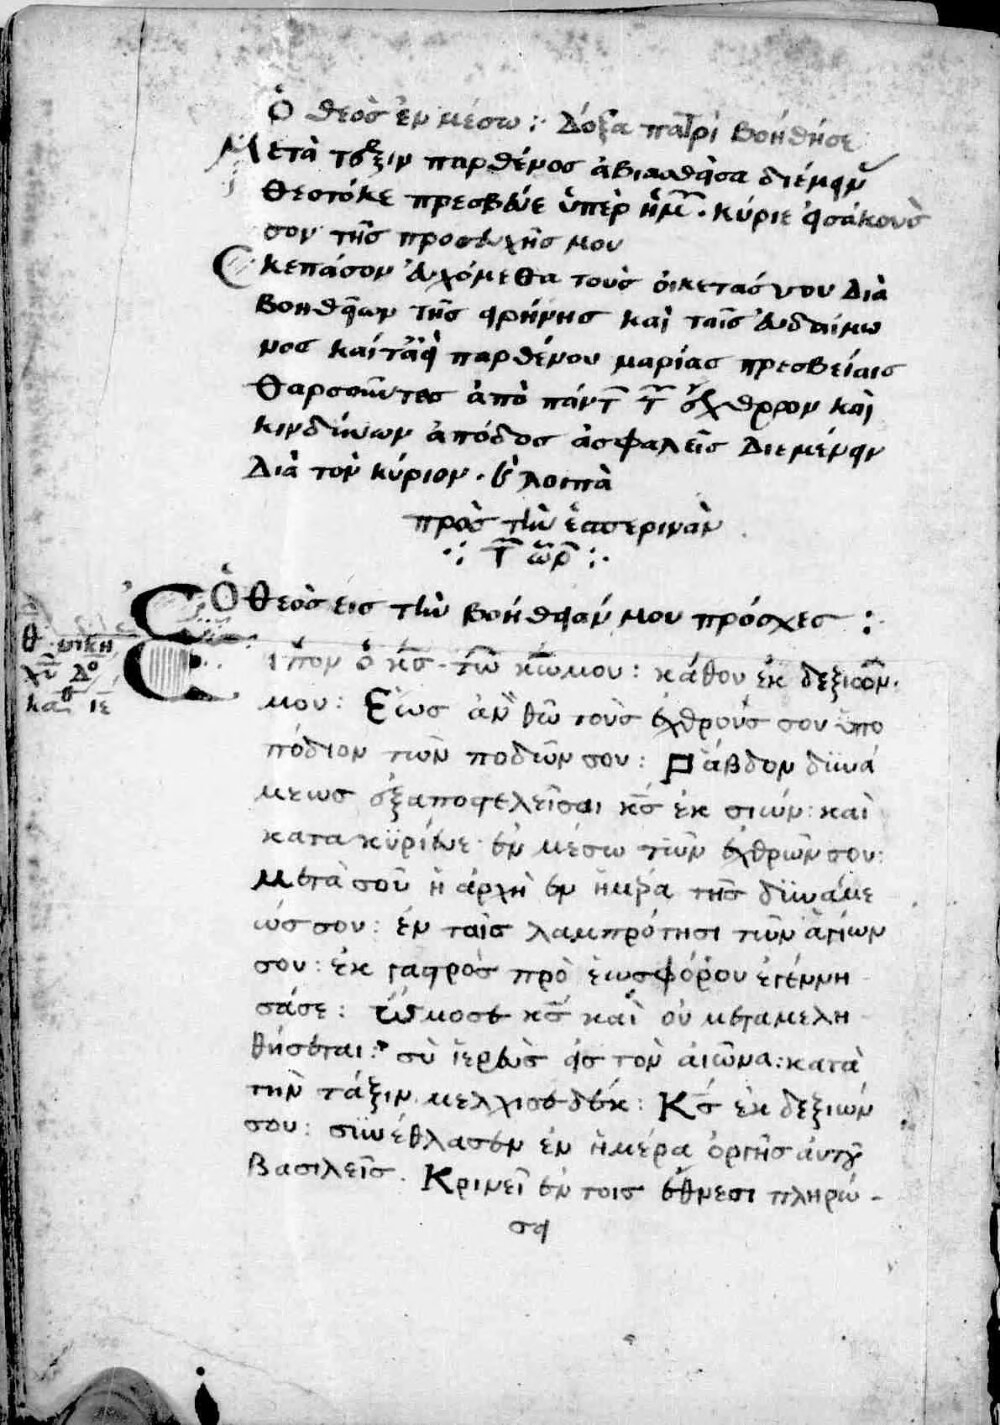 Ὁ θεὸς ἐν μέσω : Δόξα πατρί βοήθησε
Μετὰ τόξιν παρθένος ἀβιασθεῖσα διέμειν
Θεοτόκε πρεσβευε ὑπὲρ ἡμ · κύριε εἰσάκουσ
σον τῆς προσευχῆς μου
Σκέπασον εὐχόμεθα τοὺς οἰκετάς σου Διὰ
βοηθειων τῆς εἰρήνης καὶ ταῖς εὐδαίμω
νος καὶ παρθένου μαρίας πρεσβείαις
Θαρσοῦντες ἀπὸ πάντ τ ἐχθρρον καὶ
κινδύνων ἀπόδος ἀσφαλεῖς Διεμένειν
Διὰ τὸν κύριον · λοιπὰ
πρὸς τὴν ἑσπερινὰν
∴ τ ὡρ ∴
Ὁ Θεὸς εἰς τὴν βοήθειάν μου πρόσχες :
Εἶπον ὁ κς τῶ κῶ μου : κάθου ἐκ δεξιῶν
μου : Εως ἀν θῶ τοὺς ἐχθρούς σου ὑπο
πόδιον τῶν ποδῶν σου : Ράβδον δυνά
μεως ἐξαποστελεῖσοι κς ἐκ σιών : καὶ
κατακϋρίευε ἐν μέσω τῶν ἐχθρῶν σου :
Μετὰ σοῦ ἡ ἀρχὴ ἐν ἡμέρα τῆς δυνάμε
ώς σου : ἐν ταῖς λαμπρότησι τῶν ἁγίων
σου : ἐκ γαστρὸς πρὸ ἑωσφόρου ἐγέννη
σάσε : Ὤμοσε κς καὶ οὐ μεταμελη
θήσεται : σὺ ἱερεὺς εἰς τὸν αἰῶνα : κατὰ
τὴν τάξιν μελχισεδέκ : Κς ἐκ δεξιών
σου : συνέθλασεν ἐν ἡμέρα ὀργῆς ἀυτοῦ
Βασιλεῖς · Κρινεῖ ἐν τοις ἔθνεσι πληρώ -
σει